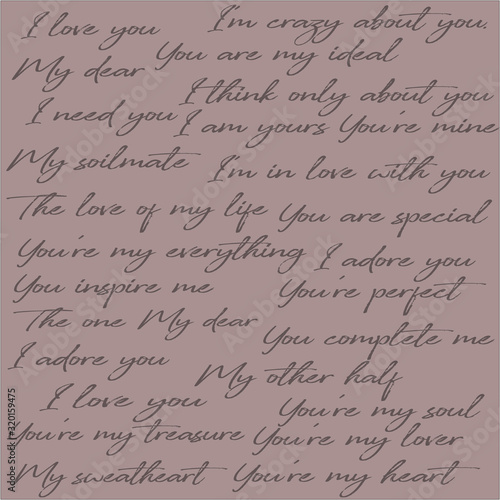 I love you I'm crazy about you.
You are my ideal
My dear
I think only about you
I need you
I am yours You're mine
My soilmate I'm in love with you
The love of my life You are special
You're my everything I adore you
You inspire me You're perfect
The one My dear
You complete me
I adore you
My other half
I love you You're my soul
You're my treasure You're my lover
My sweatheart You're my heart
Adobe Stock | #320159475